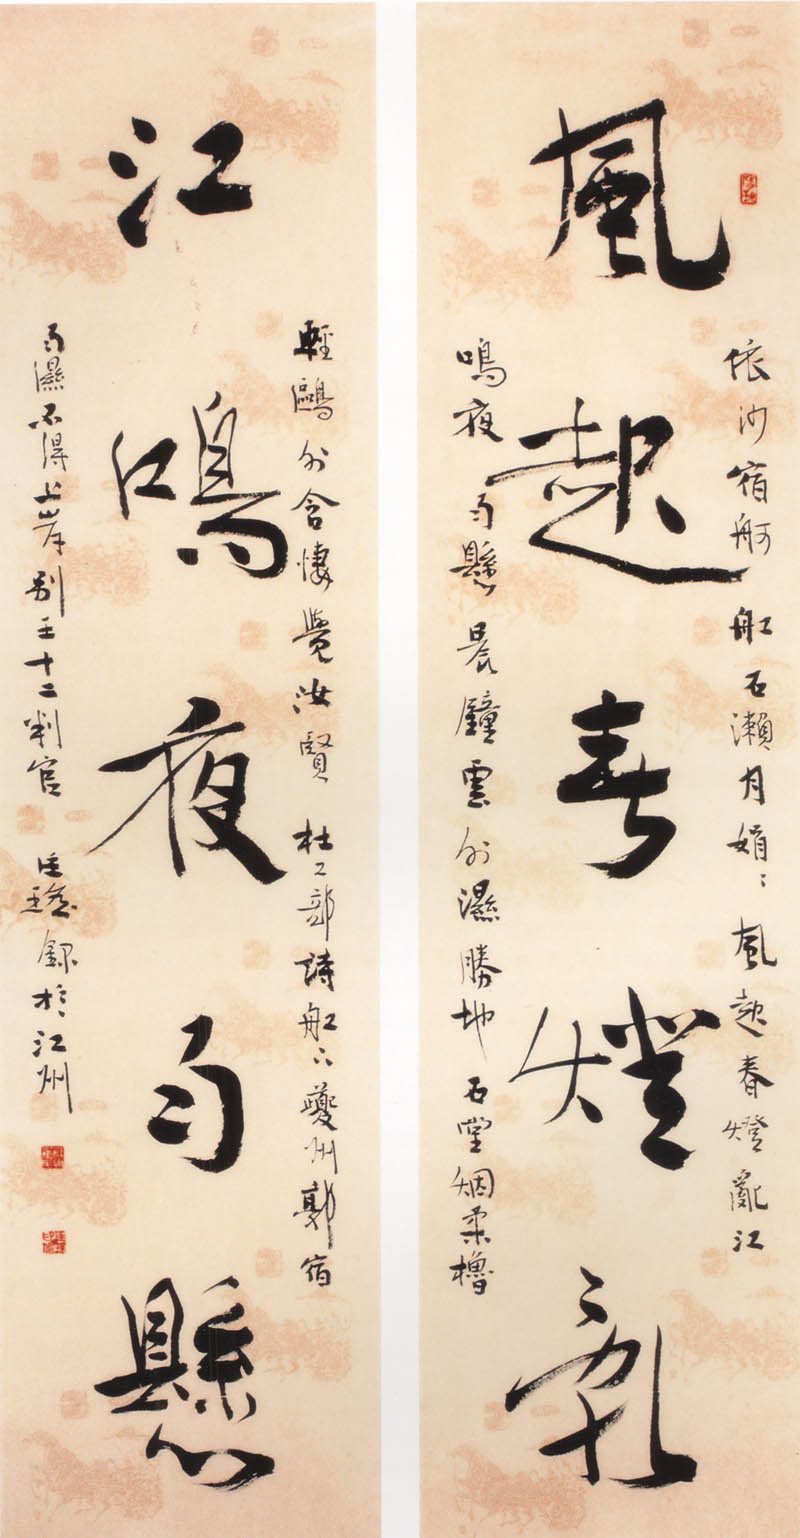 風起春燈亂
依沙宿舸舡石瀨月娟〻風起春燈亂江
鳴夜雨懸晨鐘雲外濕勝地石堂烟柔櫓
江鳴夜雨懸
輕鷗外含悽覺汝賢 杜工部詩舡下夔州郭宿
雨濕不得上岸別王十二判官 錄於江州